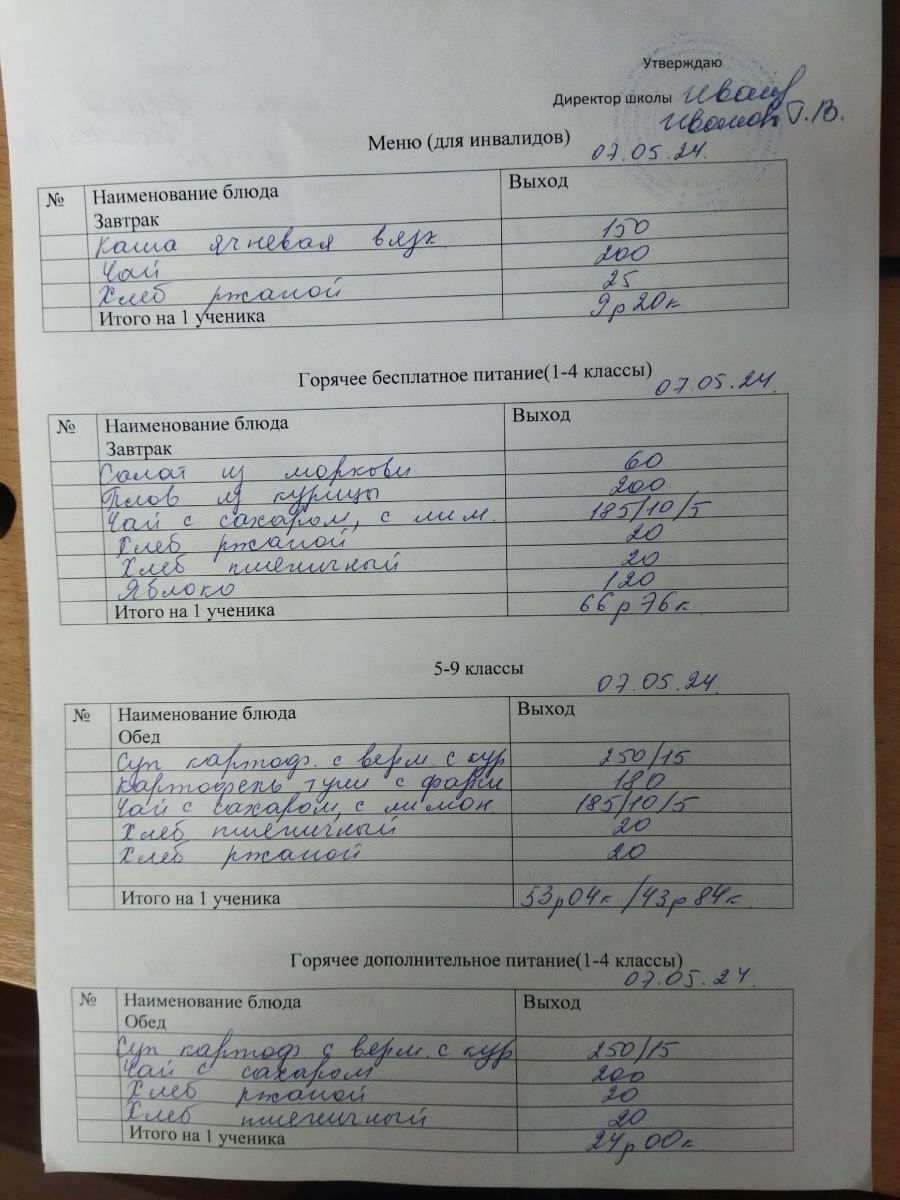 Утверждаю
Директор школы Иванов
Иванов Г.В.
Меню (для инвалидов)
07.05.24.
№ Наименование блюда Выход
Завтрак
Каша ячневая вязк. 150
Чай 200
Хлеб ржаной 25
Итого на 1 ученика 9р20к
Горячее бесплатное питание(1-4 классы)
07.05.24.
№ Наименование блюда Выход
Завтрак
Салат из моркови 60
Плов из курицы 200
Чай с сахаром, с лим. 185/10/5
Хлеб ржаной 20
Хлеб пшеничный 20
Яблоко 120
Итого на 1 ученика 66р76к.
5-9 классы
07.05.24.
№ Наименование блюда Выход
Обед
Суп картоф. с верм. с кур 250/15
Картофель туш с фарш 180
Чай с сахаром, с лимон. 185/10/5
Хлеб пшеничный 20
Хлеб ржаной 20
Итого на 1 ученика 53р04к/43р84к.
Горячее дополнительное питание(1-4 классы)
07.05.24.
№ Наименование блюда Выход
Обед
Суп картоф с верм. с кур 250/15
Чай с сахаром 200
Хлеб ржаной 20
Хлеб пшеничный 20
Итого на 1 ученика 24р00к.